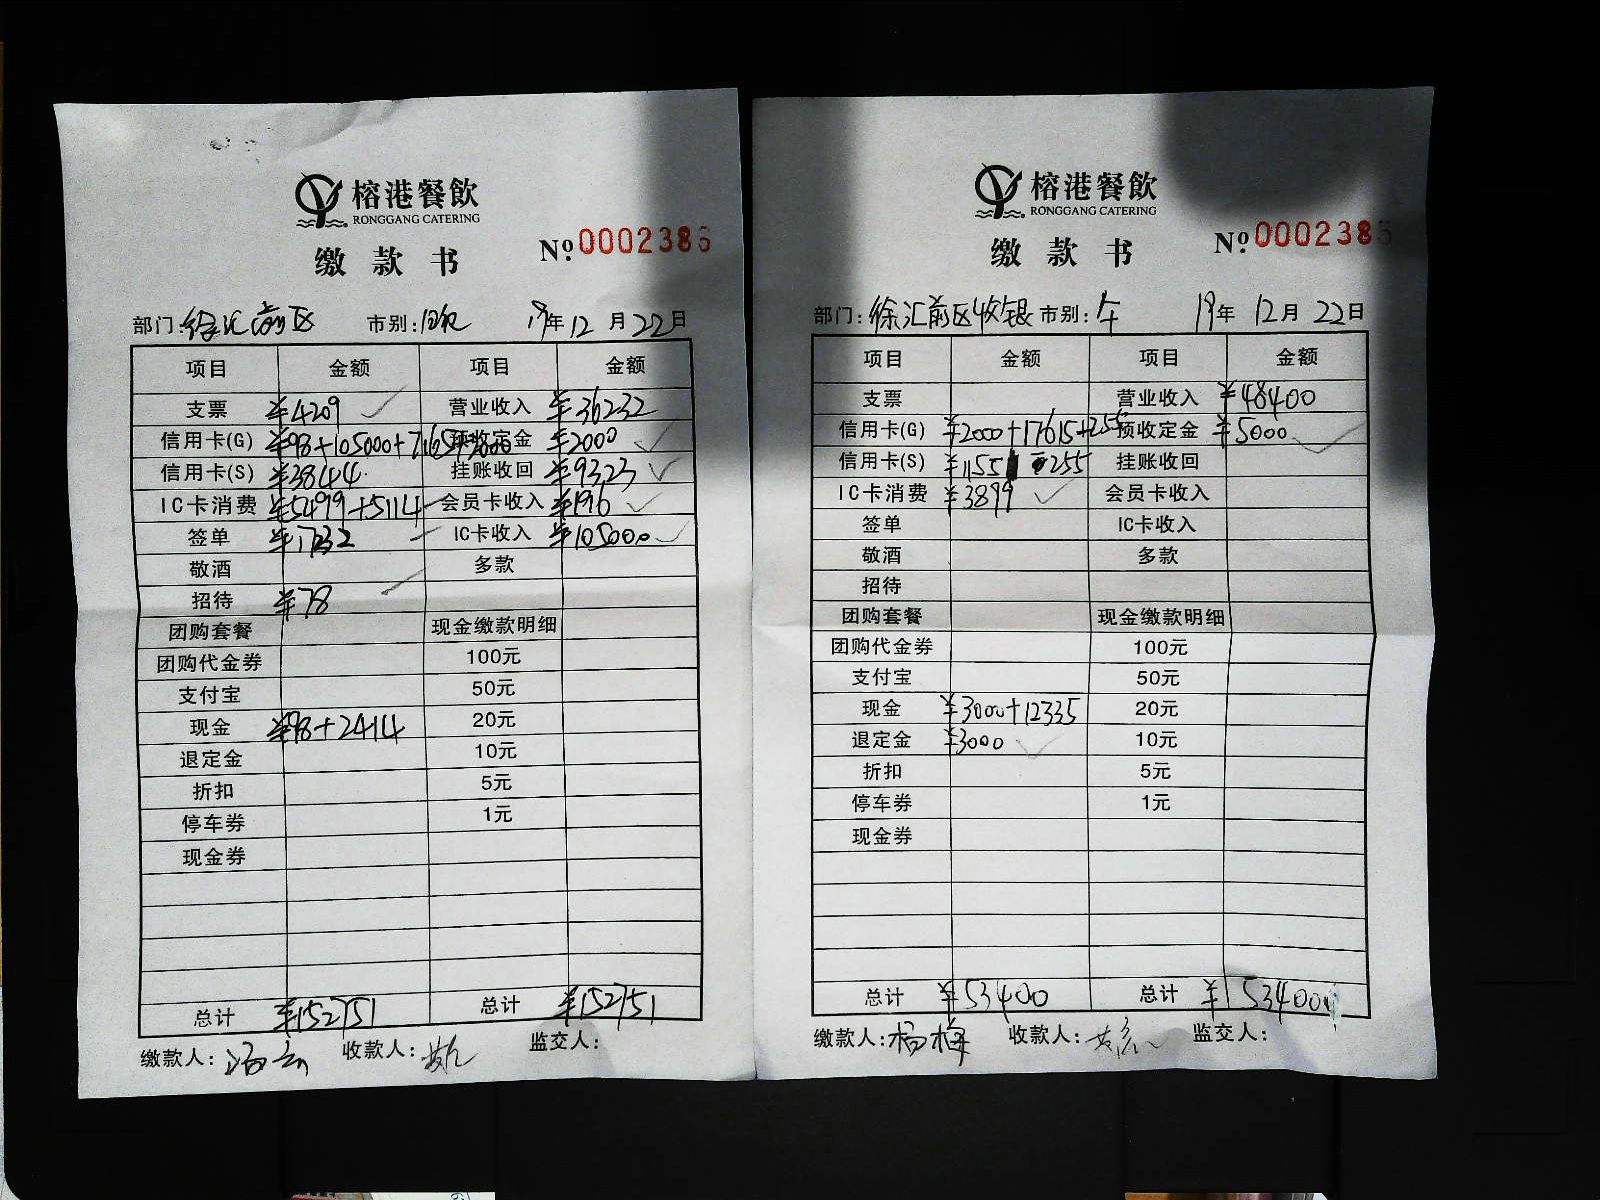 榕港餐飲
RONGGANG CATERING
缴款书 №0002386
部门: 徐汇前区 市别: 晚 19年12月22日
项目 金额 项目 金额
支票 ¥4209 营业收入 ¥36232
信用卡(G) ¥98+105000+7165+2000 预收定金 ¥2000
信用卡(S) ¥38444 挂账收回 ¥9323
IC卡消费 ¥5499+5114 会员卡收入 ¥196
签单 ¥1732 IC卡收入 ¥105000
敬酒 多款
招待 ¥78
团购套餐 现金缴款明细
团购代金券 100元
支付宝 50元
现金 ¥98+2414 20元
退定金 10元
折扣 5元
停车券 1元
现金券
总计 ¥152751 总计 ¥152751
缴款人: 收款人: 监交人:
榕港餐飲
RONGGANG CATERING
缴款书 №0002385
部门: 徐汇前区收银 市别: 午 19年12月22日
项目 金额 项目 金额
支票 营业收入 ¥48400
信用卡(G) ¥2000+17615+255 预收定金 ¥5000
信用卡(S) 挂账收回
IC卡消费 ¥3899 会员卡收入
签单 IC卡收入
敬酒 多款
招待
团购套餐 现金缴款明细
团购代金券 100元
支付宝 50元
现金 ¥3000+12335 20元
退定金 ¥3000 10元
折扣 5元
停车券 1元
现金券
总计 ¥53400 总计 ¥53400
缴款人: 杨梅 收款人: 监交人: